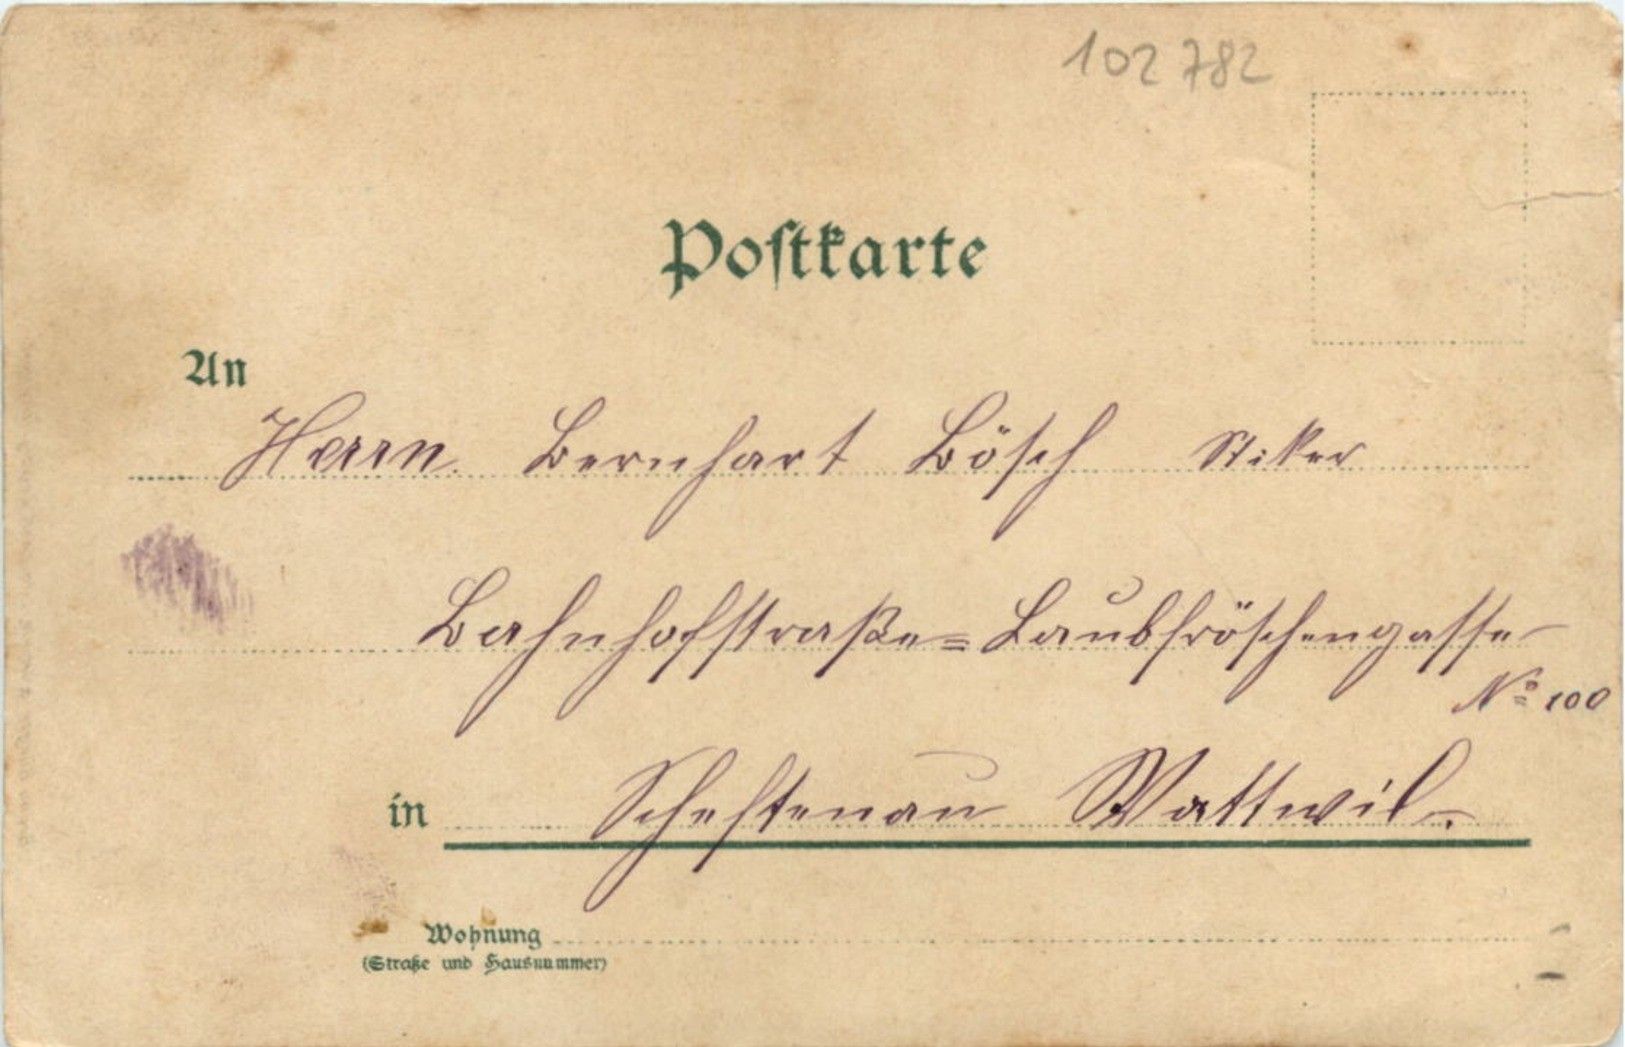 102 782
Postkarte
An
Herrn. Bernhart Bösch Stiker
Bahnhofstraße = Laubfröschengasse
No 100
in Scheftenau Wattwil.
Wohnung
(Straße und Hausnummer)